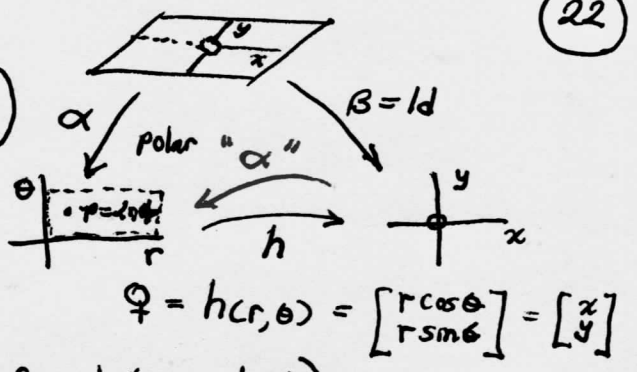 22
y
x
α
β = Id
polar "α"
θ
r
h
y
x
q = h(r, θ) = [r cos θ
r sin θ] = [x
y]